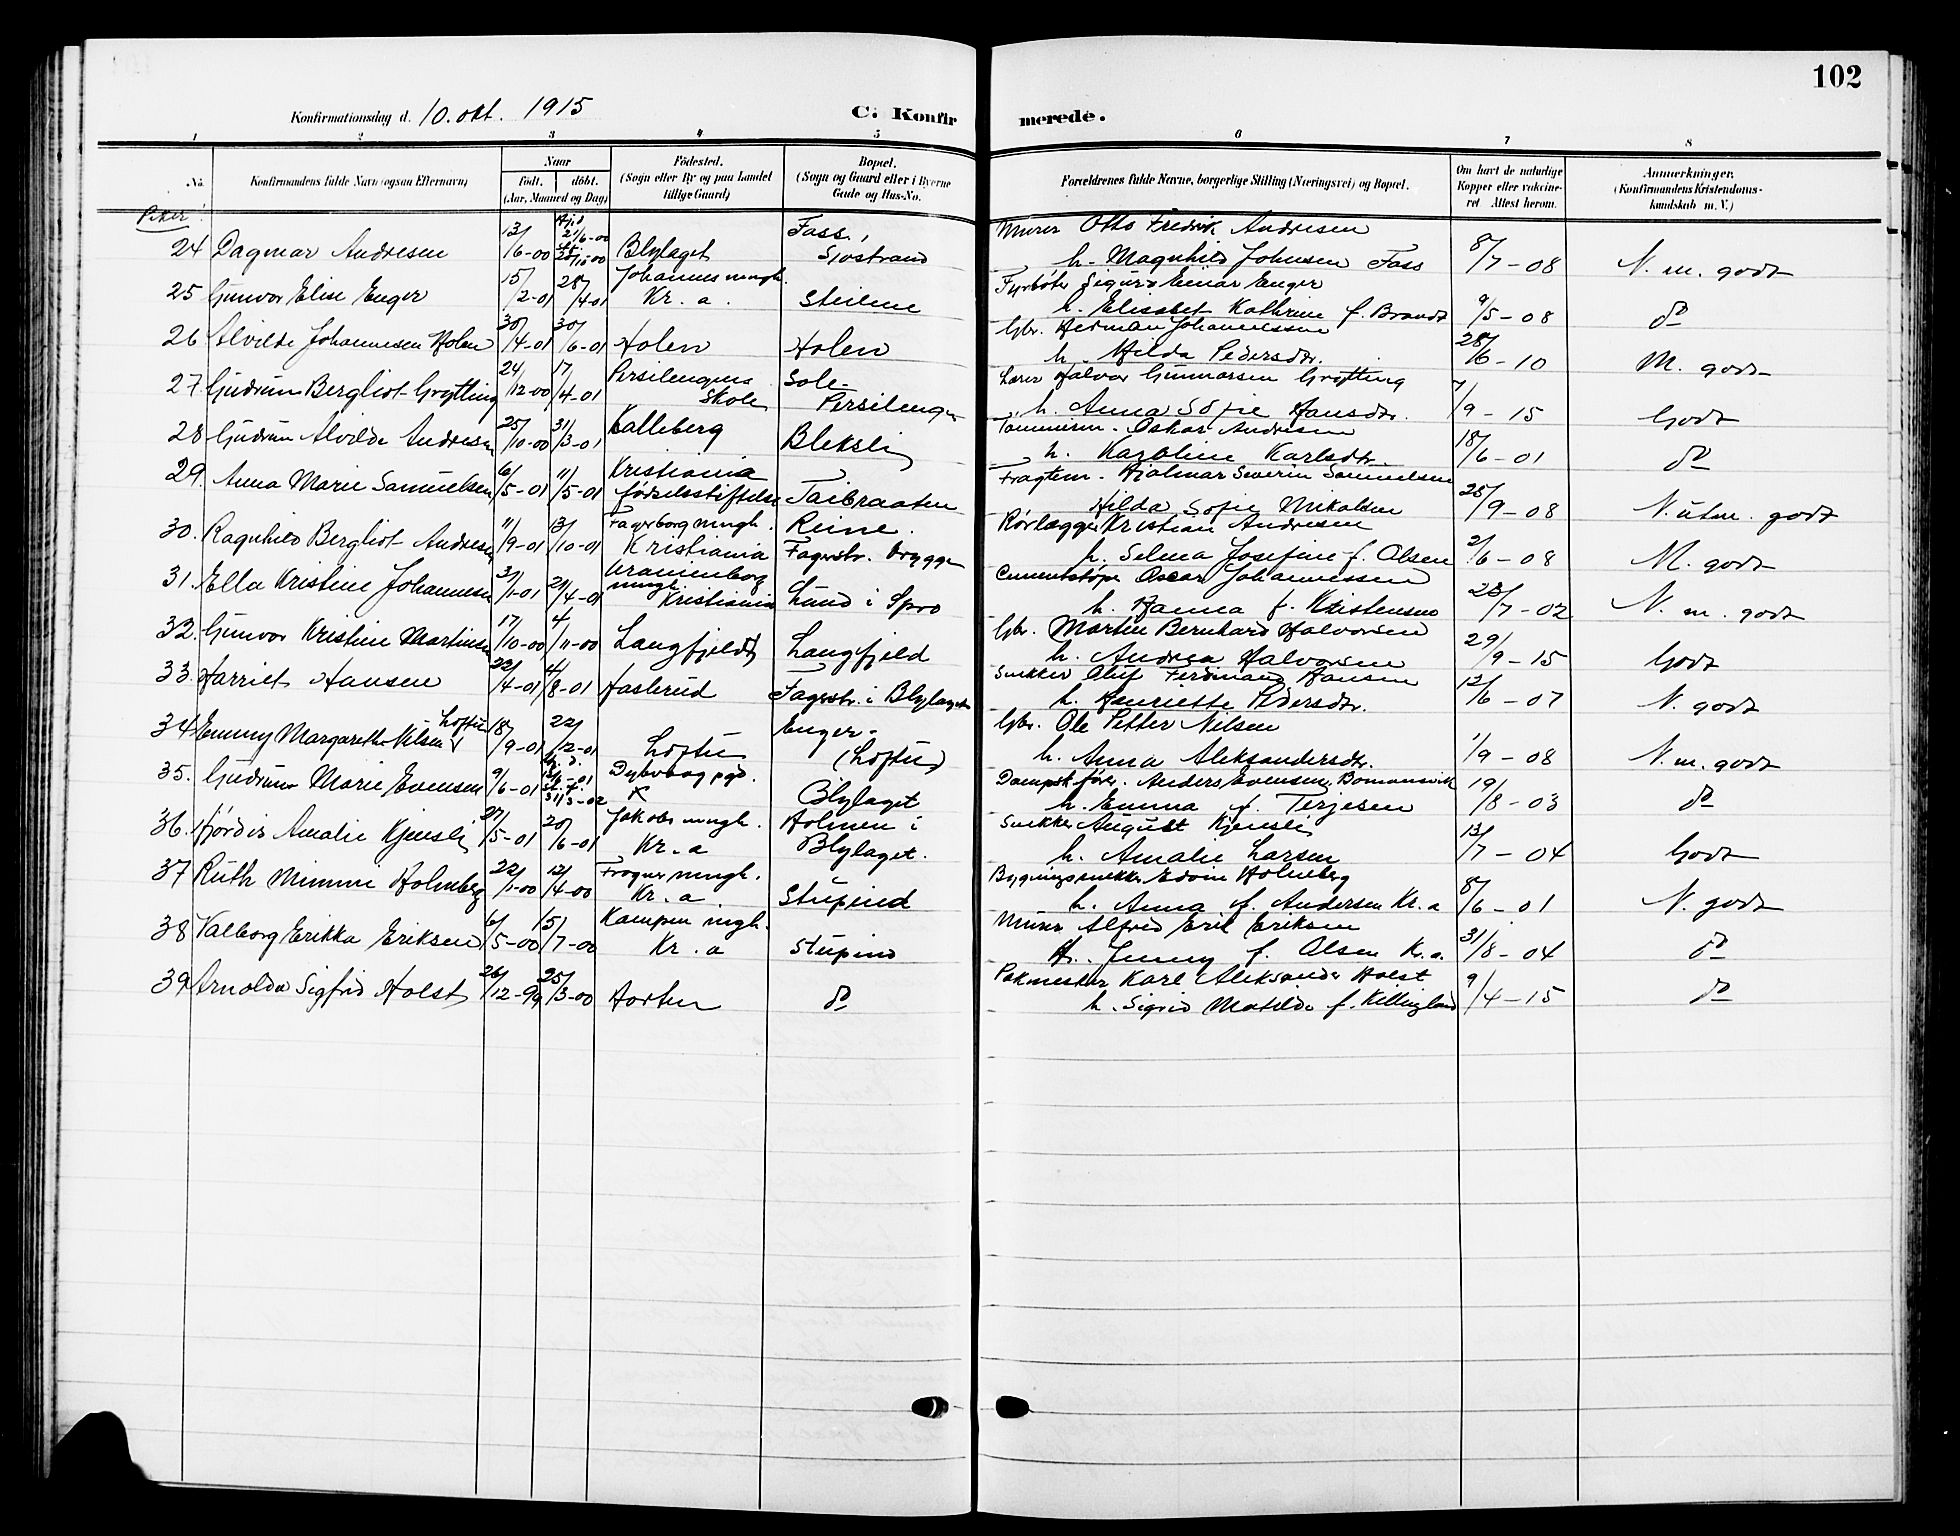 102
Konfirmationsdag d. 10. okt. 1915 C. Konfirmerede.
1 2 3 4 5 6 7 8
No. Konfirmandens fulde Navn (ogsaa Efternavn)
Naar
født. døbt.
(Aar, Maaned og Dag)
Fødested.
(Sogn eller By og paa Landet
tillige Gaard)
Bopæl.
(Sogn og Gaard eller i Byerne
Gade og Hus-No.
Forældrenes fulde Navne, borgerlige Stilling (Næringsvei) og Bopæl.
Om havt de naturlige
Kopper eller vaccine-
ret Attest herom.
Anmerkninger.
(Konfirmandens Kristendoms-
kundskab m. V.)
Piker!
24 Dagmar Andresen 13/6-00 Hjd. 21/6-00 Blylaget Fass, Sjøstrand Murer Otto Fredrik Andresen
h. Magnhild Johnsen Fass 8/7-08 N. m. godt
25 Gunvor Elise Enger 15/2-01 28/4-01 Johannes mengh. Kr.a. Steilene Fyrbøter Sigurd Einar Enger
h. Elisabet Kathrine f. Brandt 9/5-08 do
26 Alvilde Johannesen Holen 30/4-01 30/6-01 Holen Holen Gbr. Herman Johannessen
h. Hilda Pedersdr. 28/6-10 M. godt
27. Gudrun Bergliot Grytting 24/12-00 17/4-01 Persilengens skole Sole- Persilengen Lærer Halvor Gunnarsen Grytting
h. Anna Sofie Hansdr. 7/9-15 Godt
28 Gudrun Alvilde Andresen 25/10-00 31/3-01 Kalleberg Bleksli Tømmerm. Oskar Andresen
h. Karoline Karlsdtr 18/6-01 do
29. Anna Marie Samuelsen 6/5-01 11/5-01 Kristiania fødselsstiftelse Taibraaten Fragtem. Hjalmar Severin Samuelsen
Hilda Sofie Nikolsen 25/9-08 N. utm. godt
30. Ragnhild Bergliot Andresen 11/9-01 13/10-01 Fagerborg mengh. Kristiania Reine. Fagerstr. brygge Rørlægger Kristian Andresen
h. Selma Josefine f. Olsen 2/6-08 M. godt
31. Ella Kristine Johannesen 3/1-01 21/4-01 Uranienborg mengh. Kristiania Lund i Spro Cementstøper Oscar Johannessen
h. Hanna f. Kristensen 28/7-02 N. m. godt
32. Gunvor Kristine Martinsen 17/10-00 4/11-00 Langfjeld Langfjeld Gbr. Martin Bernhard Halvorsen
h. Andrea Halvorsen 29/9-15 Godt
33. Harriet Hansen 22/4-01 4/8-01 Hasterud Fagerstr. i Blylaget Snekker Oluf Ferdinand Hansen
h. Henriette Pedersdr. 12/6-07 N. godt
34 Emmy Margarethe Nilsen Loftu 18/9-01 22/12-01 Loftu Enger- (Loftu) Gbr. Ole Petter Nilsen
h. Anna Aleksandersdr. 1/9-08 N. m. godt
35. Gudrun Marie Evensen 9/6-01 31/3-02 Dybvaag pgd. x Blylaget Dampsk.fører. Anders Evensen, Bomansvik
h. Emma f. Terjesen 19/8-03 do
36. Hjørdis Amalie Kjensli 27/5-01 20/6-01 Jakobs mengh. Kr.a Holmen i Blylaget. Snekker August Kjensli
h. Amalie Larsen 13/7-04 Godt
37 Ruth Mimmi Holmberg 22/1-00 12/4-00 Frogner mengh. Kr.a. Stupind Bygningssnekker Edvin Holmberg
h. Anna f. Andersen Kr.a 8/6-01 N. godt
38 Valborg Erikka Eriksen 6/5-00 15/7-00 Kampen mgh. Kr.a Stupind Murer Alfred Eril Eriksen
h. Jenny f. Olsen Kr.a. 31/8-04 do
39 Arnolda Sigfrid Holst 26/12-99 25/3-00 Horten do Pakmester Karl Aleksander Holst
h. Sigrid Matilde f. Killingland 9/4-15 do